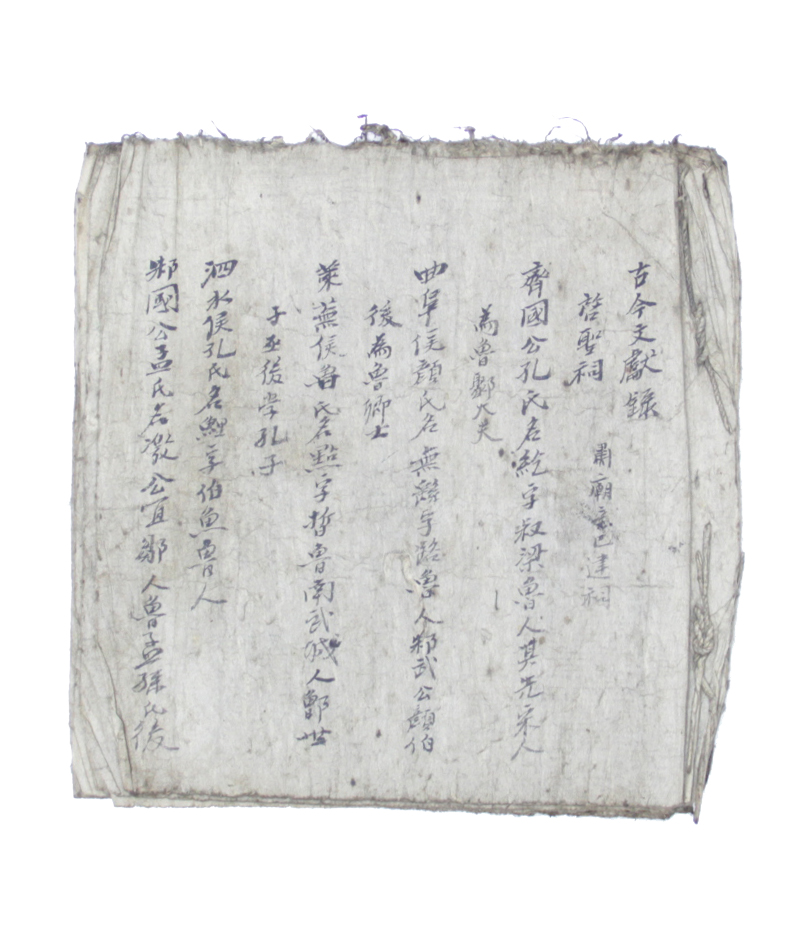 古今文獻錄
啓聖祠 肅廟辛巳建祠
齊國公孔氏名紇字叔梁魯人其先宋人
為魯鄹大夫
曲阜侯顔氏名無繇字路魯人邾武公顔伯
後為魯卿士
萊蕪侯曾氏名點字晳魯南武城人鄫世
子巫後學孔子
泗水侯孔氏名鯉字伯魚魯人
邾國公孟氏名激公宜鄒人魯孟孫氏後